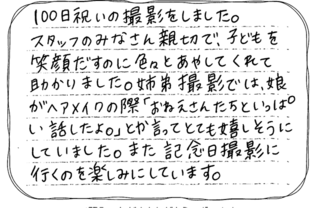 100日祝いの撮影をしました。
スタッフのみなさん親切で、子どもを
笑顔だすのに色々とあやしてくれて
助かりました。姉弟撮影では、娘
がヘアメイクの際「おねえさんたちといっぱ
い話したよ。」とか言ってとても嬉しそうに
していました。また記念日撮影に
行くのを楽しみにしています。